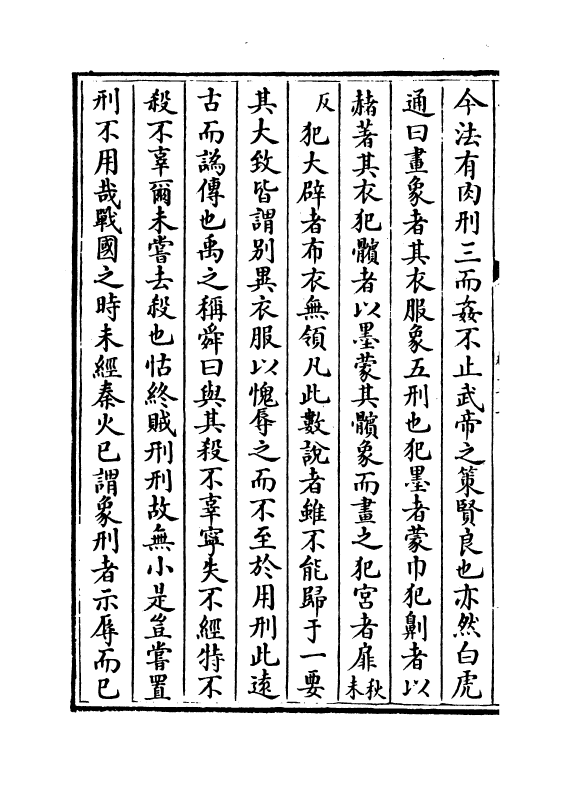 今法有肉刑三而姦不止武帝之策賢良也亦然白虎
通曰畫象者其衣服象五刑也犯墨者蒙巾犯劓者以
赭著其衣犯髕者以墨蒙其髕象而畫之犯宮者扉秋未
反犯大辟者布衣無領凡此數說者雖不能歸于一要
其大致皆謂別異衣服以愧辱之而不至於用刑此遠
古而譌傳也禹之稱舜曰與其殺不辜寧失不經特不
殺不辜爾未嘗去殺也怙終賊刑刑故無小是豈嘗置
刑不用哉戰國之時未經秦火已謂象刑者示辱而已